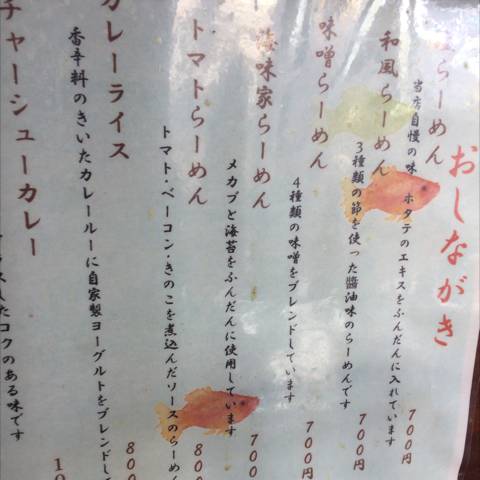 おしながき
らーめん
当店自慢の味 ホタテのエキスをふんだんに入れています
700円
和風らーめん
3種類の節を使った醤油味のらーめんです
700円
味噌らーめん
4種類の味噌をブレンドしています
700円
海味家らーめん
メカブと海苔をふんだんに使用しています
700
トマトらーめん
トマト・ベーコン・きのこを煮込んだソースのらーめん
800
カレーライス
香辛料のきいたカレールーに自家製ヨーグルトをブレンドし
800
チャーシューカレー
したコクのある味です
10